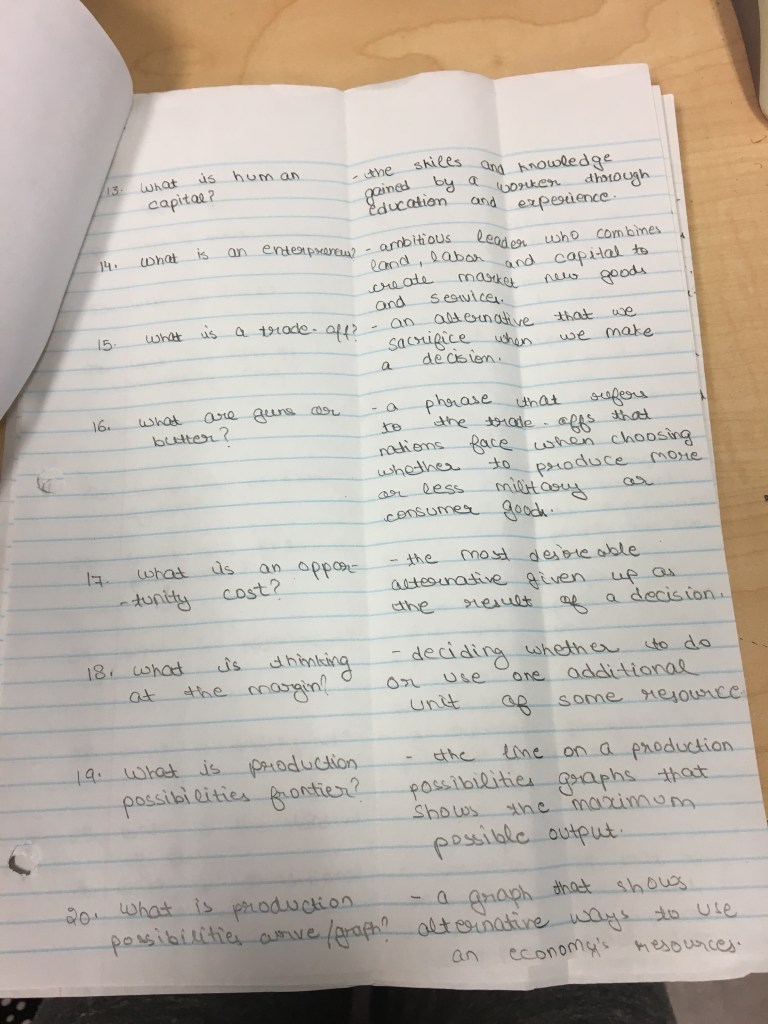 13. What is human - the skills and knowledge
capital? gained by a worker through
education and experience.
14. What is an enterpreneur? - ambitious leader who combines
land, labor and capital to
create market new goods
and services.
15. What is a trade-off? - an alternative that we
sacrifice when we make
a decision.
16. What are guns or - a phrase that refers
butter? to the trade-offs that
nations face when choosing
whether to produce more
or less military or
consumer goods.
17. What is an oppor- - the most desireable
-tunity cost? alternative given up as
the result of a decision.
18. What is thinking - deciding whether to do
at the margin? or use one additional
unit of some resource
19. What is production - the line on a production
possibilities frontier? possibilities graphs that
shows the maximum
possible output.
20. What is production - a graph that shows
possibilities curve/graph? alternative ways to use
an economy's resources.